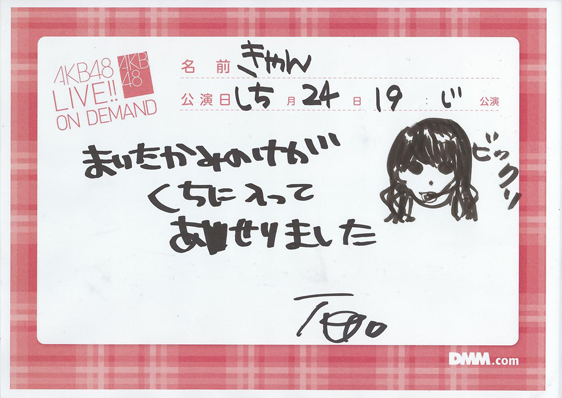 AKB48
LIVE!!
ON DEMAND
AKB
48
名前 きゃん
公演日 しち月24日 19:じ 公演
まいたかみのけが
くちに入って
あせりました
ビックリ
DMM.com